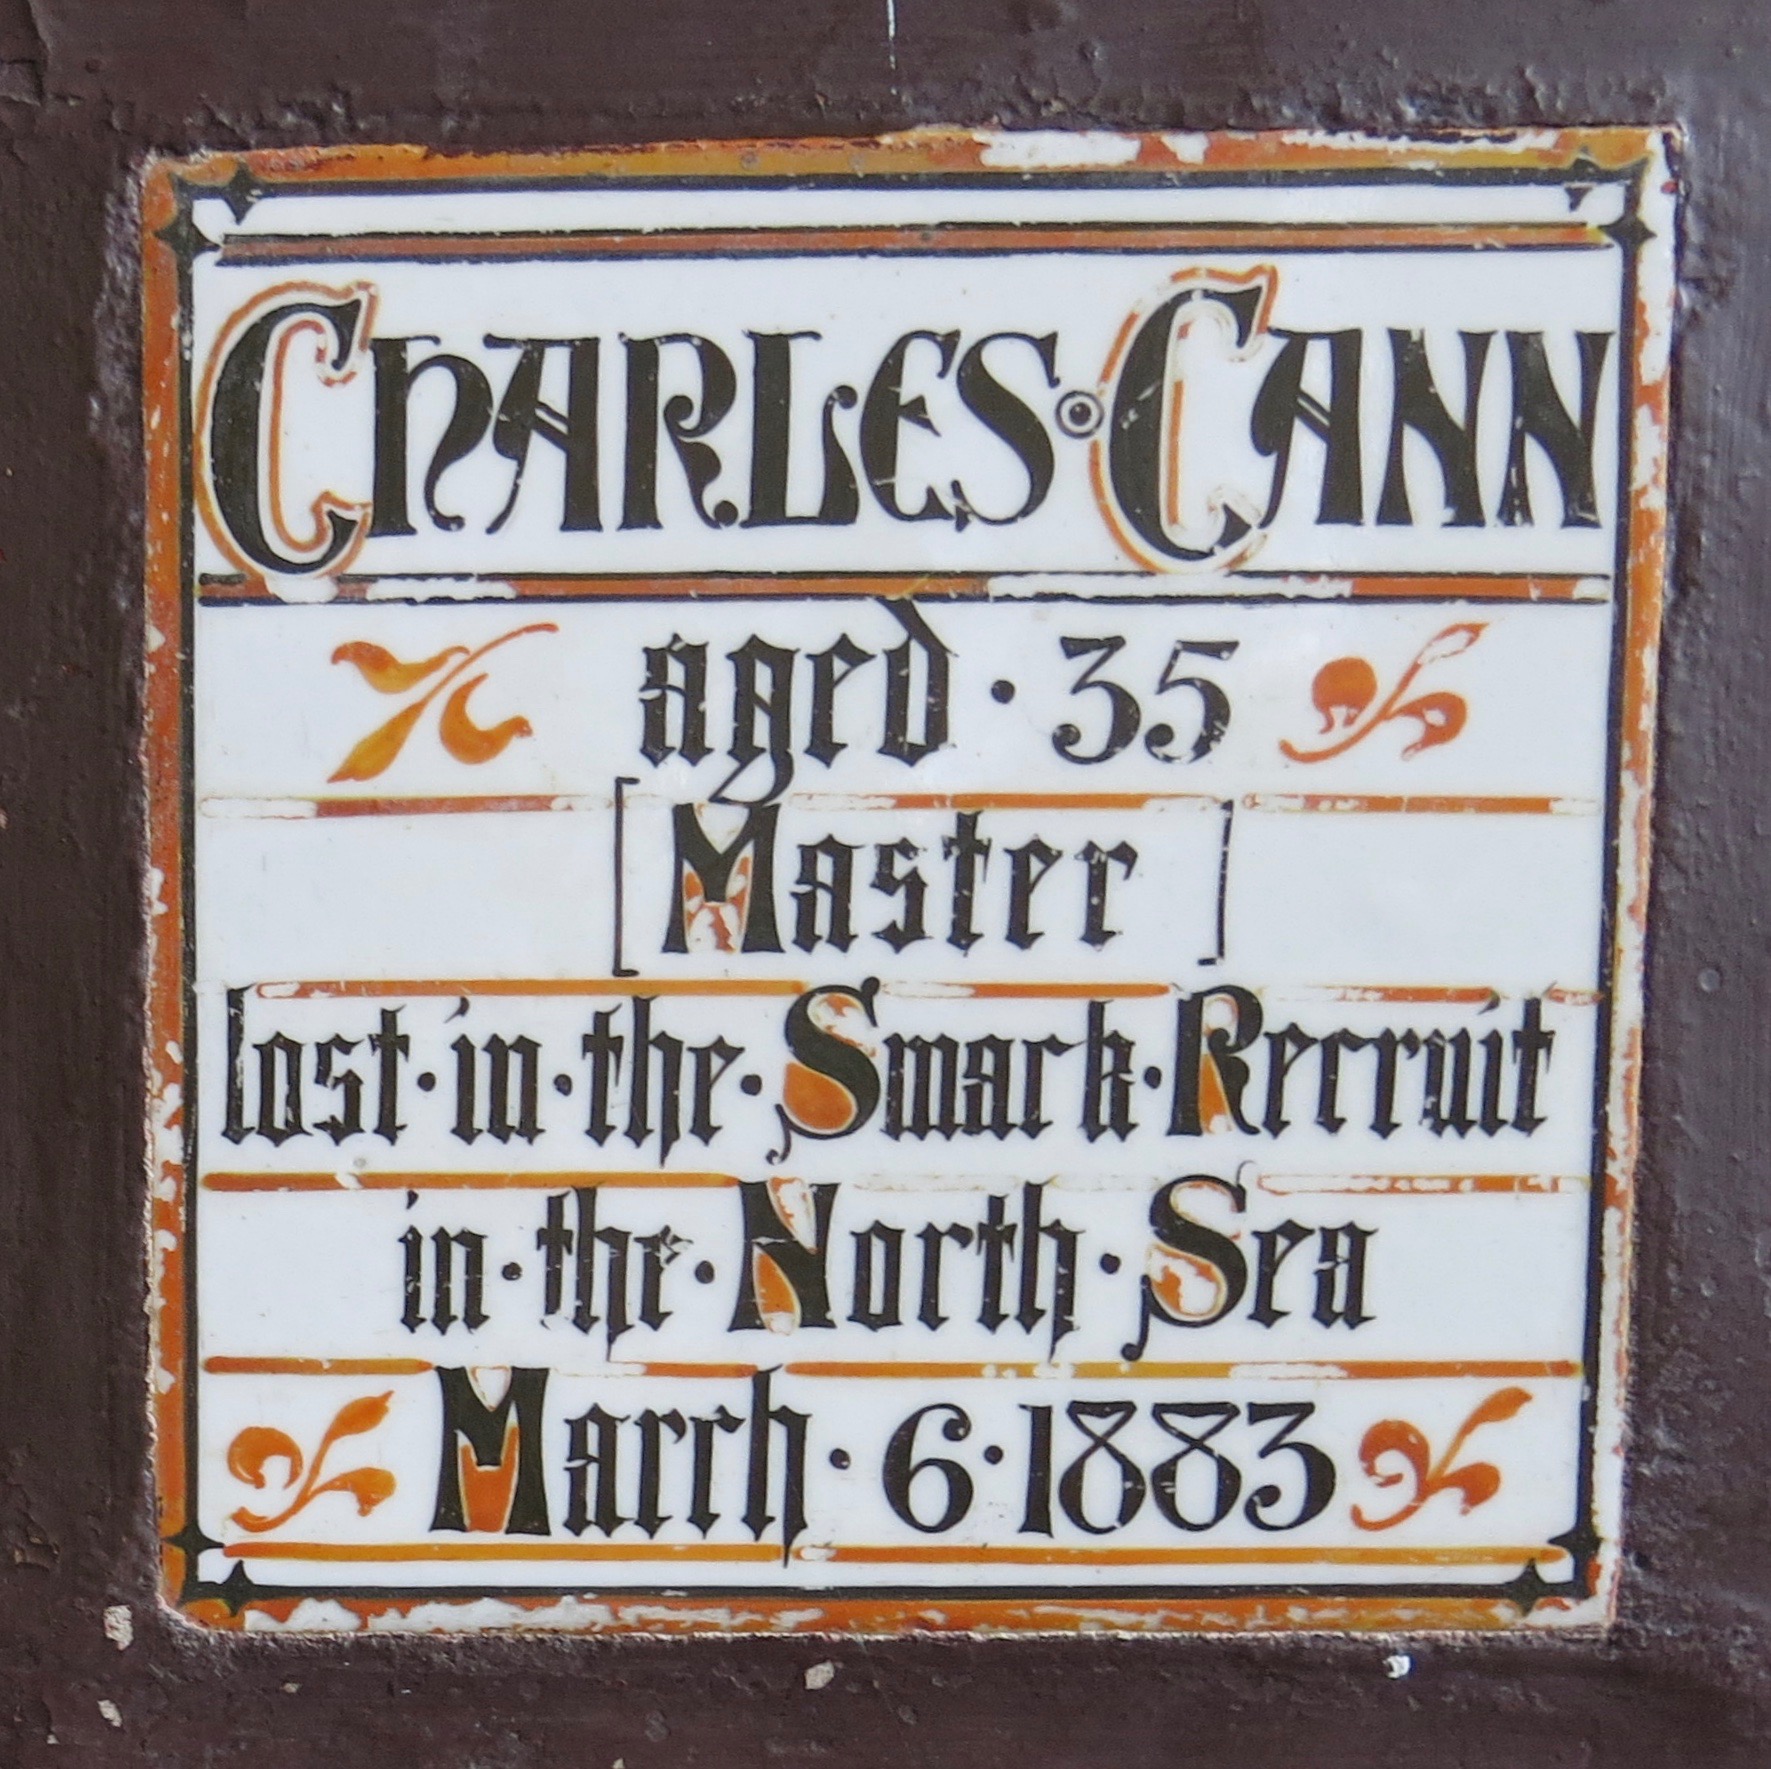 CHARLES·CANN
aged · 35
[Master]
lost·in·the·Smack·Recruit
in·the·North·Sea
March·6·1883